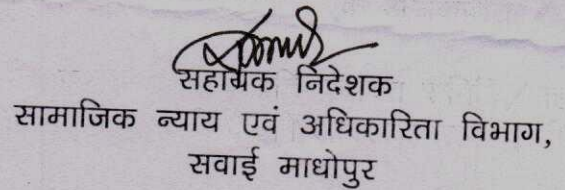 सहायक निदेशक
सामाजिक न्याय एवं अधिकारिता विभाग,
सवाई माधोपुर